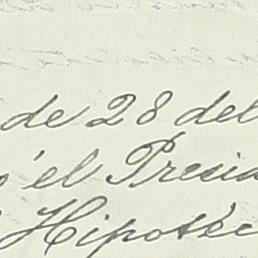 de 28 del
el Presid
Hipotec